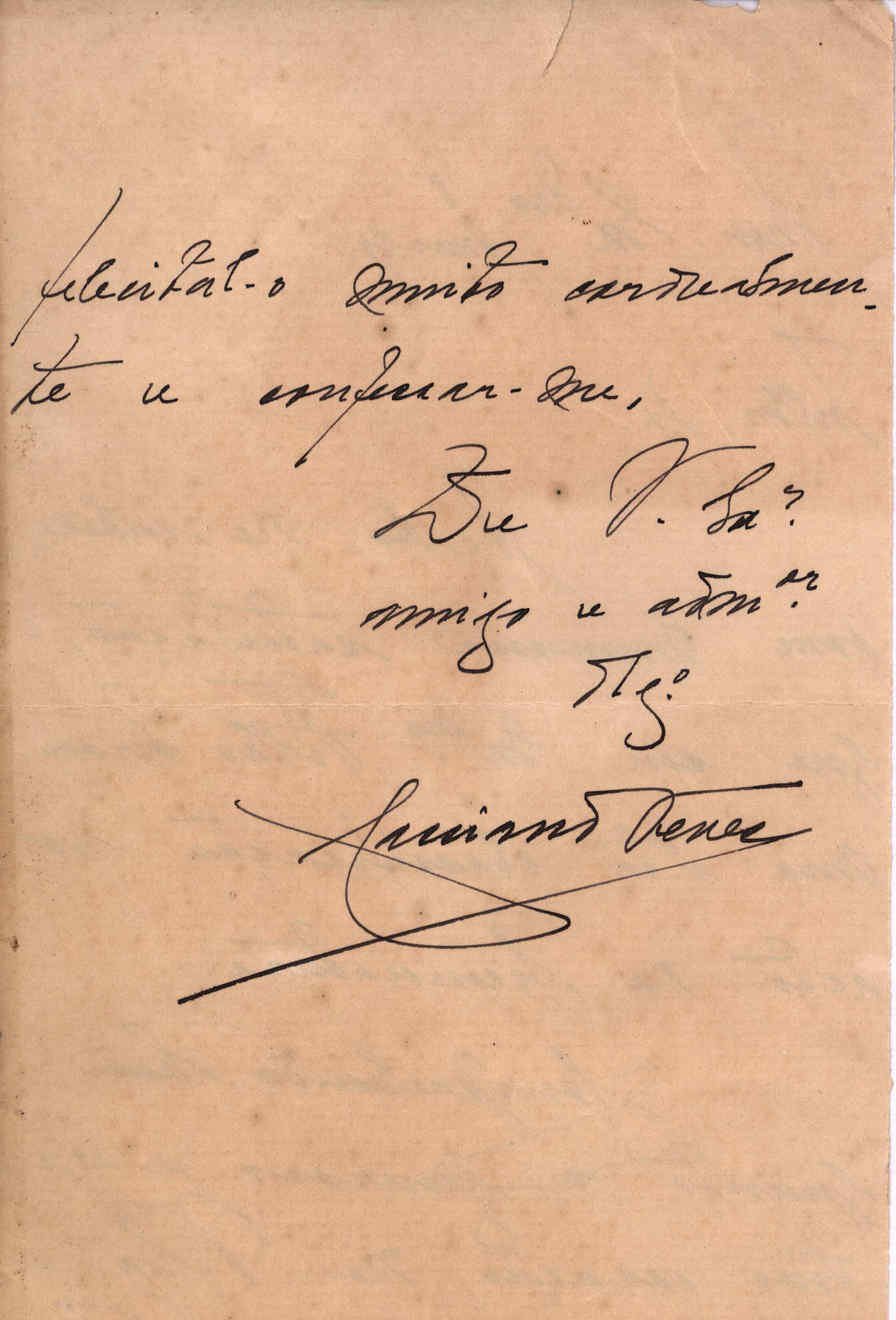 felicital-o muito cordealmen-
te e confessar-me,
De V. Sa.
amigo e adm.or
Luciano